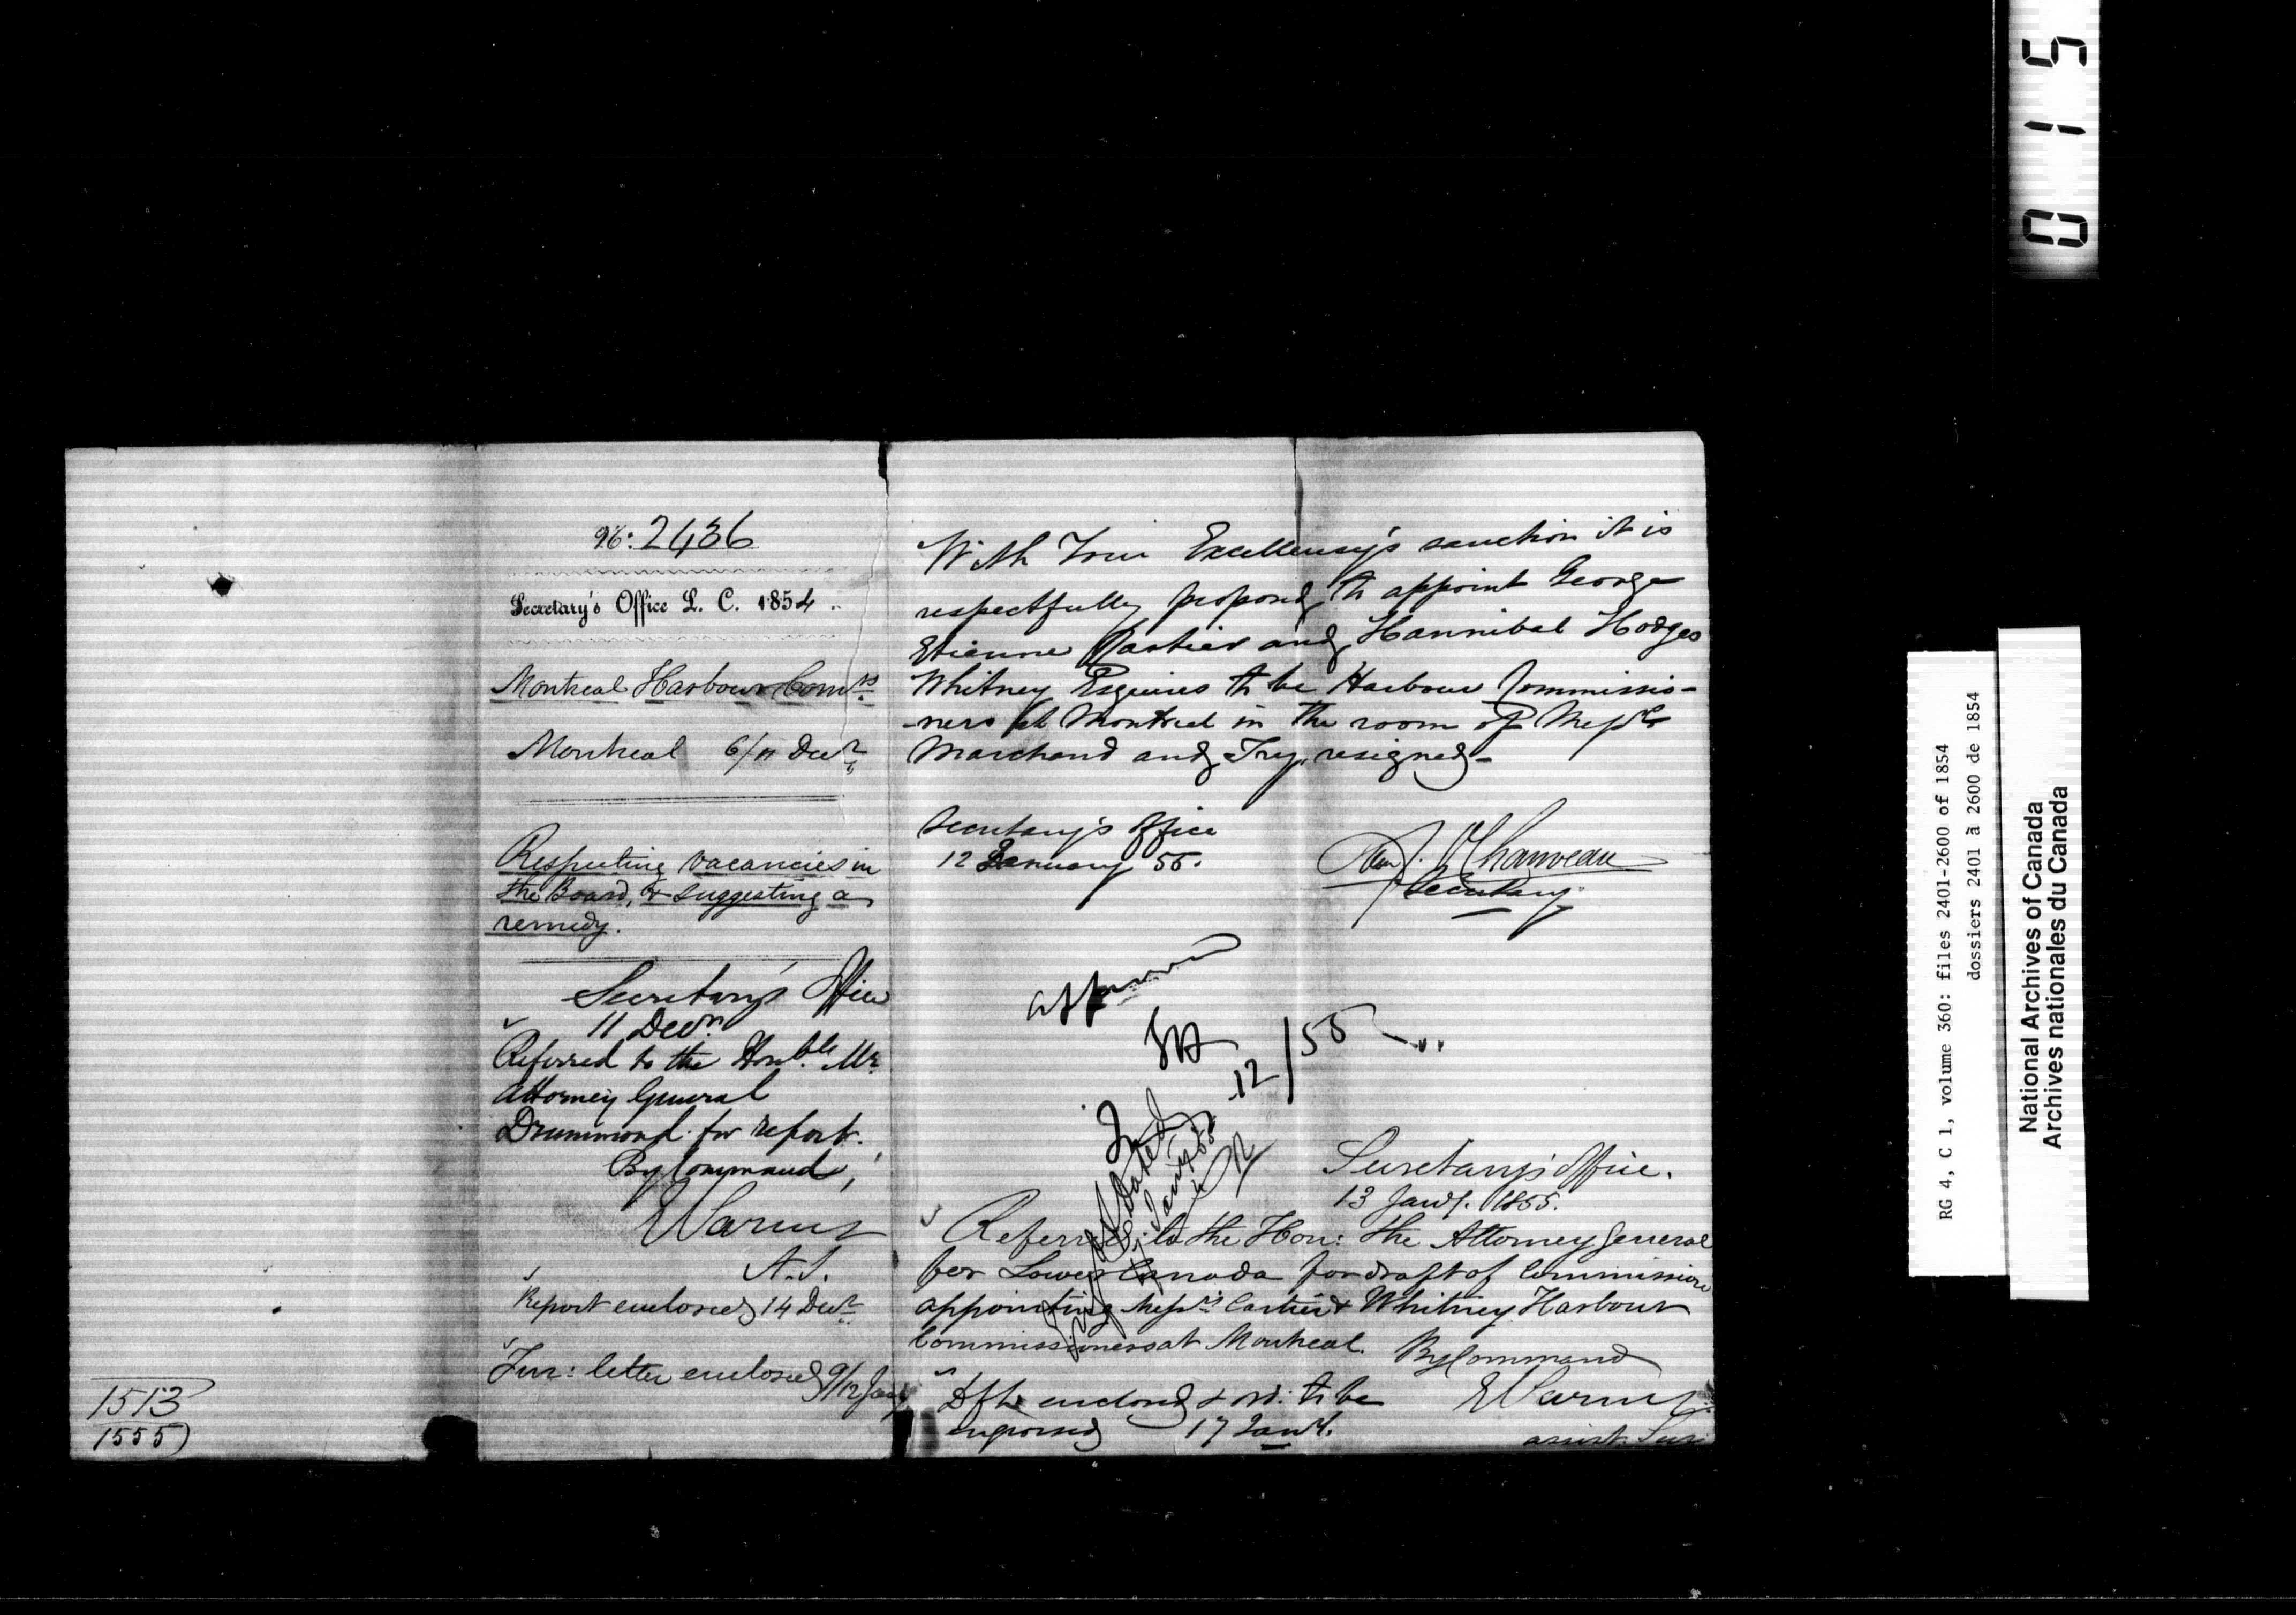 No: 2436
Secretary's Office L. C. 1854.
Montreal Harbour Comrs.
Montreal 6/11 Decr.
Respecting vacancies in
the Board, & suggesting a
remedy.
Secretary's Office
11 Decr.
Referred to the Honble. Mr.
Attorney General
Drummond for report.
By Command,
A. S.
Report enclosed 14 Decr.
Fur: letter enclosed 9/12 Jany
1513
1555
With Your Excellency's sanction it is
respectfully proposed to appoint George
Etienne Cartier and Hannibal Hodges
Whitney Esquires to be Harbour Commissio-
-ners at Montreal in the room of Messrs
Marchand and Try, resigned -
Secretary's Office
12 January 55.
Chauveau
Secretary
approved
12/55
dated
Jany 55
Secretary's Office.
13 Jany. 1855.
Referred to the Hon: the Attorney General
for Lower Canada for draft of Commission
appointing Messrs. Cartier & Whitney Harbour
Commissioners at Montreal. By Command
Dft enclosed & to be
engrossed 17 Jany.
assist. Sec:
015
RG 4, C 1, volume 360: files 2401-2600 of 1854
dossiers 2401 à 2600 de 1854
National Archives of Canada
Archives nationales du Canada